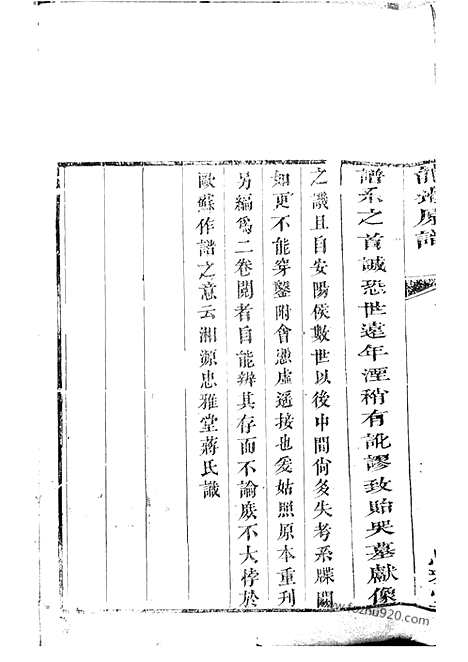 譜系之首誠恐世遠年湮稍有訛謬致貽哭墓獻像
之譏且自安陽侯數世以後中間尙多失考系牒闕
如更不能穿鑿附會憑虛遥接也爰姑照原本重刋
另編爲二卷閱者自能辨其存而不論庶不大悖於
歐蘇作譜之意云湘源忠雅堂蔣氏識
www.fozhu920.com